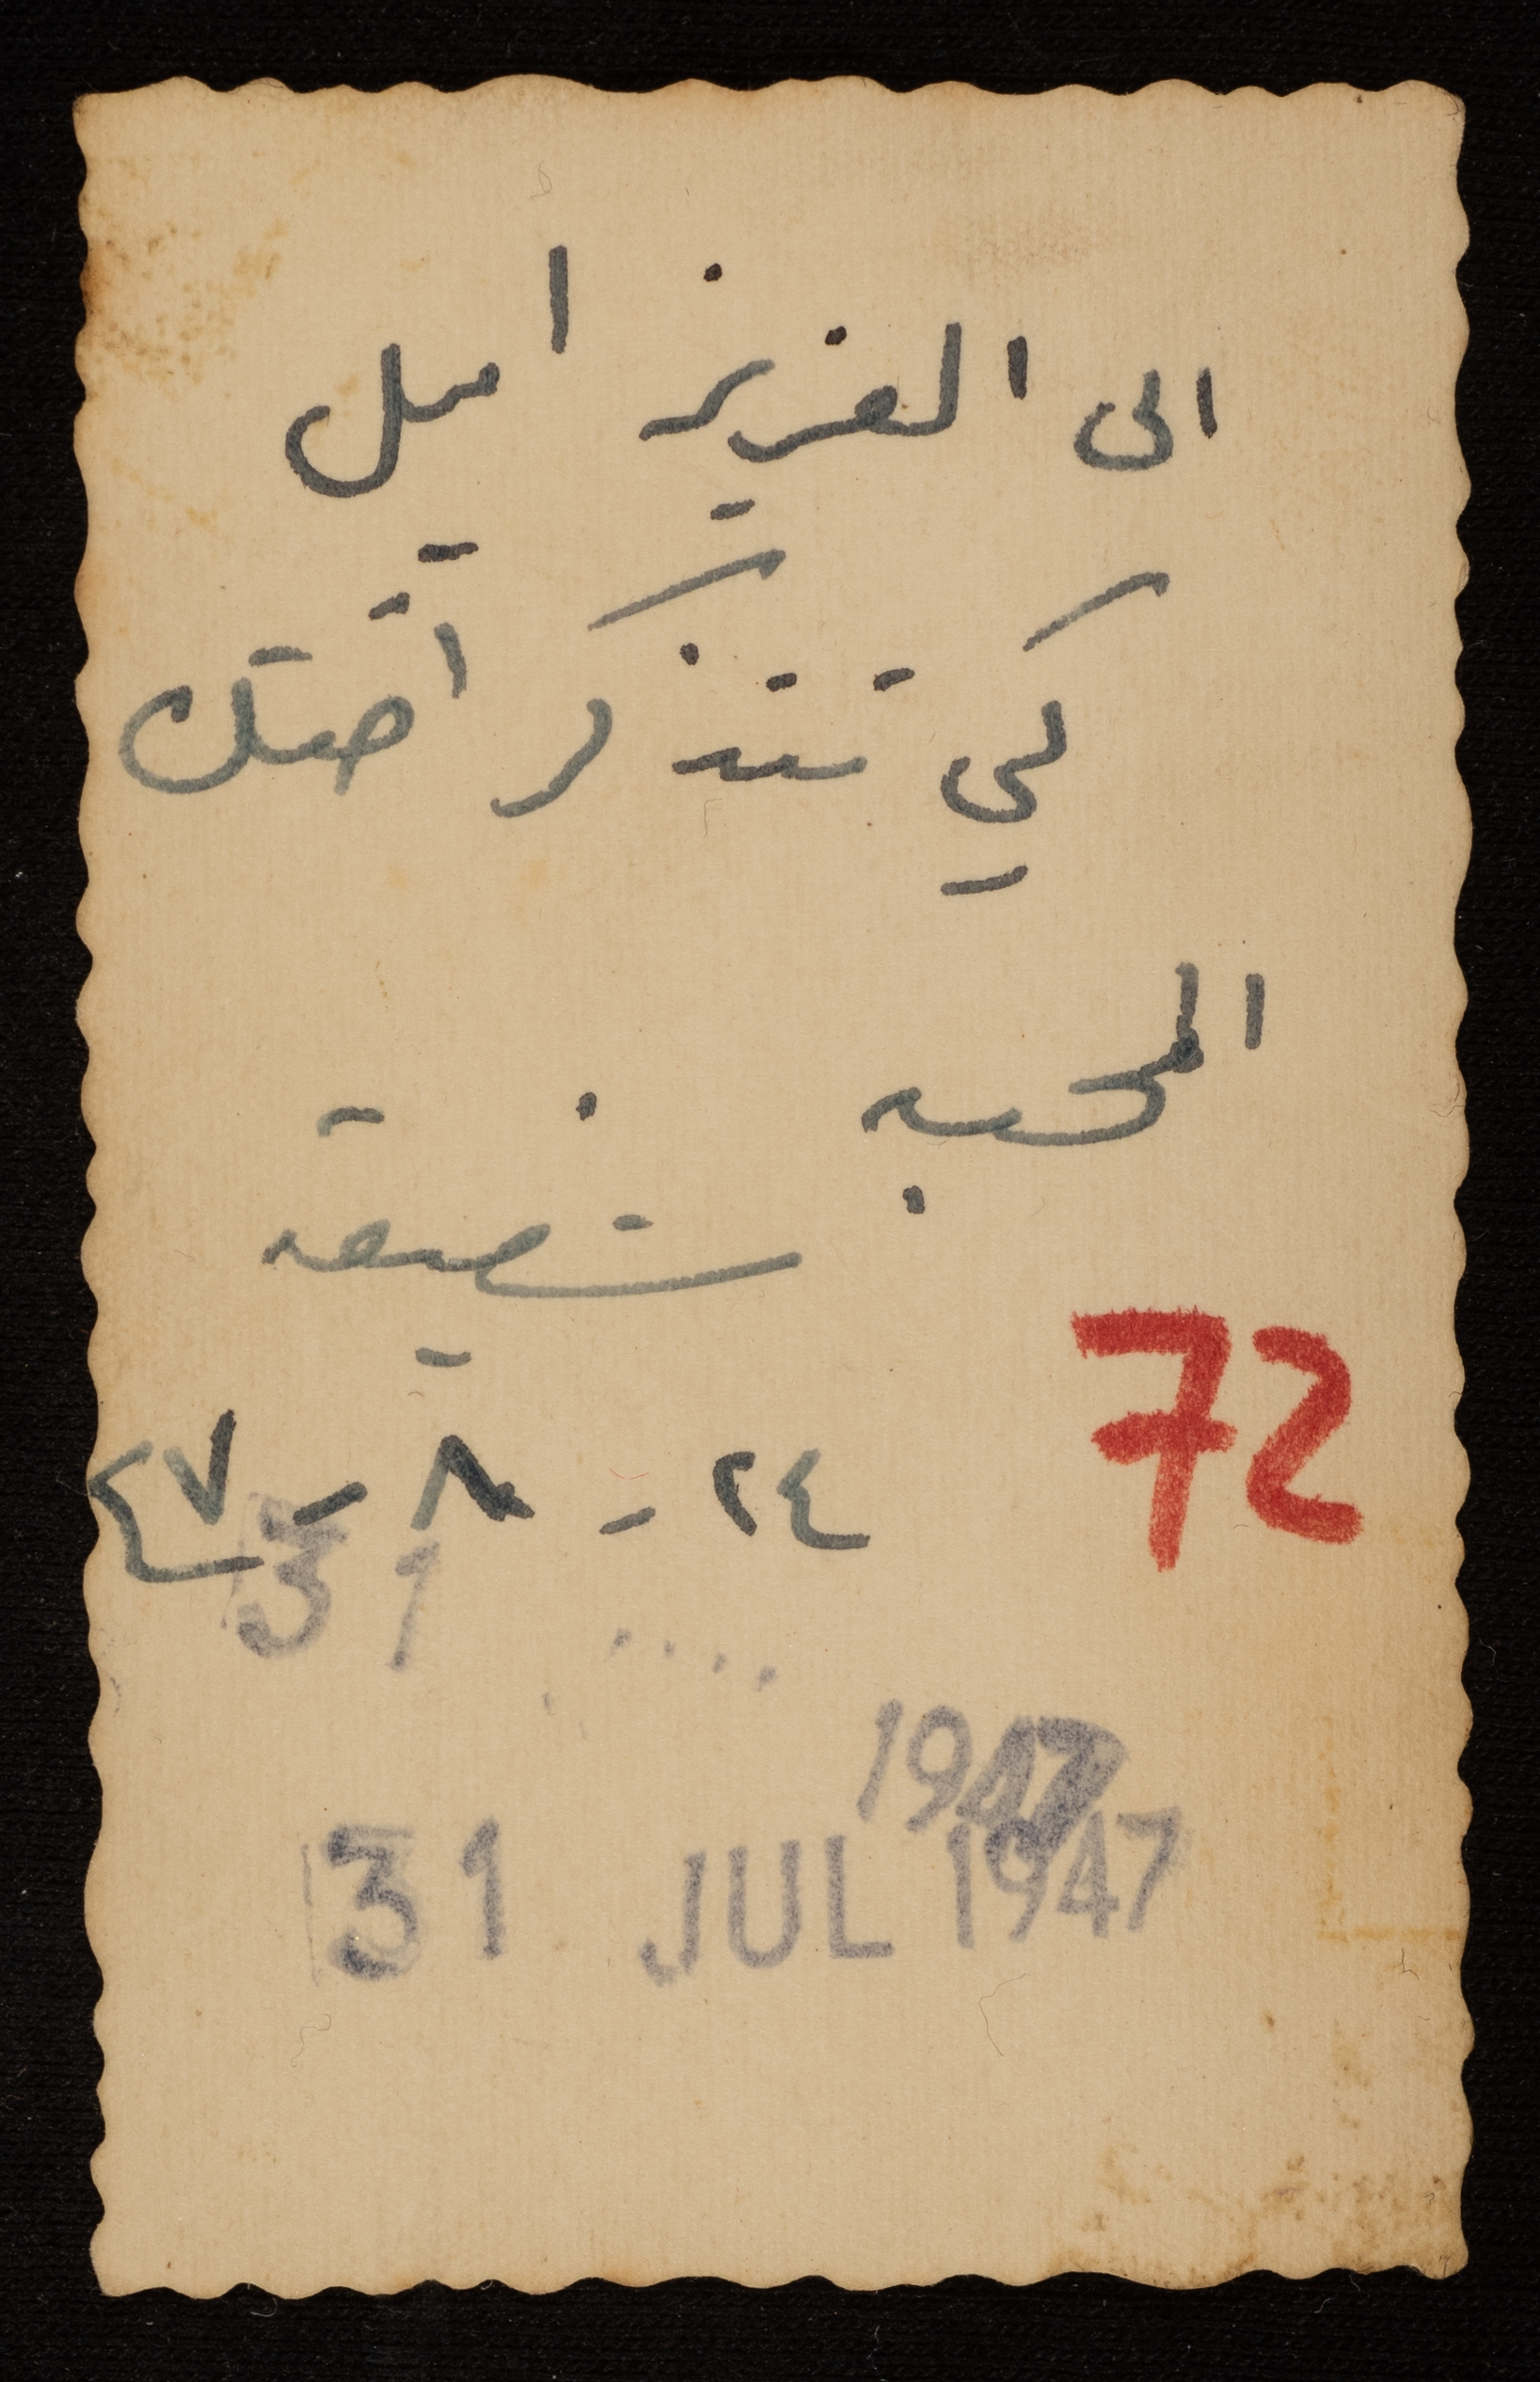 الى العزيز اميل
كي تتذكر اختك
المحبه
شفيقه
72
٢٤ - ٨ - ٤٧
31
1947
31 JUL 1947